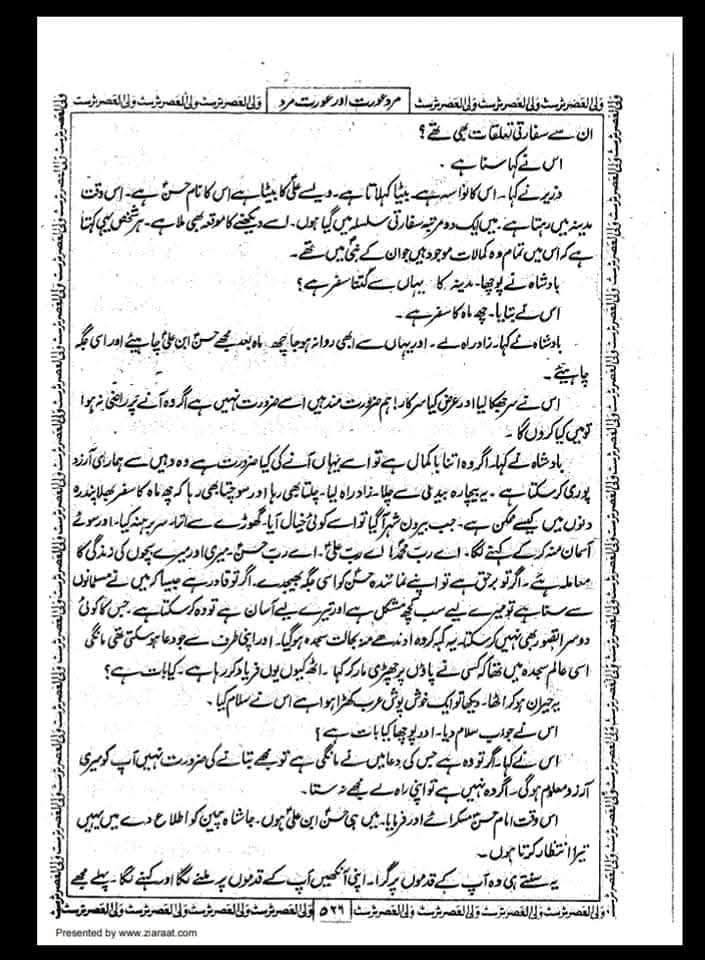 ولی العصر ٹرسٹ ولی العصر ٹرسٹ ولی العصر ٹرسٹ مرد عورت اور عورت مرد ولی العصر ٹرسٹ ولی العصر ٹرسٹ ولی العصر ٹرسٹ
ان سے سفارتی تعلقات بھی تھے؟
اس نے کہا سنا ہے۔
وزیر نے کہا۔ اس کا نواسہ ہے۔ بیٹا کہلاتا ہے۔ ویسے علیؑ کا بیٹا ہے اس کا نام حسنؑ ہے۔ اس وقت
مدینہ میں رہتا ہے۔ میں ایک دو مرتبہ سفارتی سلسلہ میں گیا ہوں۔ اسے دیکھنے کا موقعہ بھی ملا ہے۔ ہر شخص یہی کہتا
ہے کہ اس میں تمام وہ کمالات موجود ہیں جو ان کے نبیؐ میں تھے۔
بادشاہ نے پوچھا۔ مدینہ کا یہاں سے کتنا سفر ہے؟
اس نے بتایا۔ چھ ماہ کا سفر ہے۔
بادشاہ نے کہا۔ زاد راہ لے۔ اور یہاں سے ابھی روانہ ہو جا چھ ماہ بعد مجھے حسنؑ ابن علیؑ چاہیئے اور اسی جگہ
چاہیئے۔
اس نے سر جھکا لیا اور عرض کیا سرکار! ہم ضرورت مند ہیں اسے ضرورت نہیں ہے اگر وہ آنے پر راضی نہ ہوا
تو میں کیا کروں گا۔
بادشاہ نے کہا۔ اگر وہ اتنا با کمال ہے تو اسے یہاں آنے کی کیا ضرورت ہے وہ وہیں سے ہماری آرزو
پوری کر سکتا ہے۔ یہ بیچارہ بیدلی سے چلا۔ زاد راہ لیا۔ چلتا بھی رہا اور سوچتا بھی رہا کہ چھ ماہ کا سفر بھلا پندرہ
دنوں میں کیسے ممکن ہے۔ جب بیرون شہر آگیا تو اسے کوئی خیال آیا۔ گھوڑے سے اترا۔ سر برہنہ کیا۔ اور سوئے
آسمان منہ کر کے کہنے لگا۔ اے رب محمدؐ! اے رب علیؑ۔ اے رب حسنؑ۔ میری اور میرے بچوں کی زندگی کا
معاملہ ہے۔ اگر تو برحق ہے تو اپنے نمائندہ حسنؑ کو اسی جگہ بھیجدے۔ اگر تو قادر ہے جیسا کہ میں نے مسلمانوں
سے سنا ہے تو میرے لیے سب کچھ مشکل ہے اور تیرے لیے آسان ہے تو وہ کر سکتا ہے۔ جس کا کوئی
دوسرا تصور بھی نہیں کر سکتا۔ یہ کہہ کر وہ اوندھے منہ بحالت سجدہ ہوگیا۔ اور اپنی طرف سے جو دعا ہو سکتی تھی مانگی
اسی عالم سجدہ میں تھا کہ کسی نے پاؤں پر چھڑی مار کر کہا۔ اٹھ کیوں یوں فریاد کر رہا ہے۔ کیا بات ہے؟
یہ حیران ہو کر اٹھا۔ دیکھا تو ایک خوش پوش عرب کھڑا ہوا ہے اس نے سلام کیا۔
اس نے جواب سلام دیا۔ اور پوچھا کیا بات ہے؟
اس نے کہا۔ اگر تو وہ ہے جس کی دعا میں نے مانگی ہے تو مجھے بتانے کی ضرورت نہیں آپ کو میری
آرزو معلوم ہوگی۔ اگر وہ نہیں ہے تو اپنی راہ لے مجھے نہ ستا۔
اس وقت امام حسنؑ مسکرائے اور فرمایا۔ میں ہی حسنؑ ابن علیؑ ہوں۔ جا شاہ چین کو اطلاع دے میں یہیں
تیرا انتظار کرتا ہوں۔
یہ سنتے ہی وہ آپ کے قدموں پر گرا۔ اپنی آنکھیں آپ کے قدموں پر ملنے لگا اور کہنے لگا۔ پہلے مجھے
ولی العصر ٹرسٹ ولی العصر ٹرسٹ ولی العصر ٹرسٹ ۵۲۶ ولی العصر ٹرسٹ ولی العصر ٹرسٹ ولی العصر ٹرسٹ
Presented by www.ziaraat.com